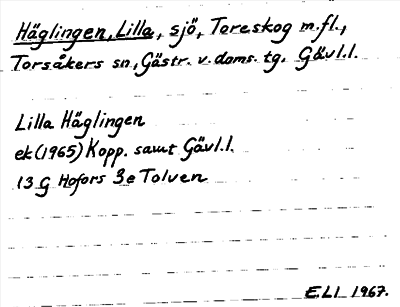 Häglingen, Lilla, sjö, Toreskog m.fl.,
Torsåkers sn, Gästr. v. doms. tg. Gävl.l.
Lilla Häglingen
ek (1965) Kopp. samt Gävl.l.
13 G Hofors 3e Tolven
E.LI 1967.